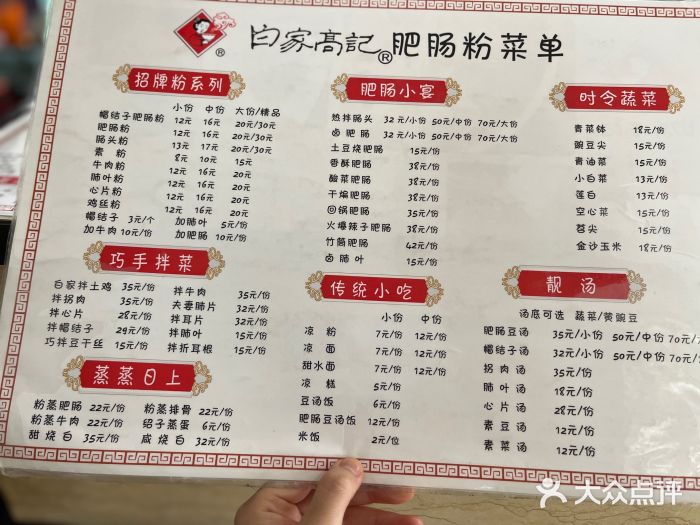 白家高記® 肥肠粉菜单
®
招牌粉系列
小份 中份 大份/精品
帽结子肥肠粉 12元 16元 20元/30元
肥肠粉 12元 16元 20元/30元
肠头粉 13元 17元 20元/30元
素粉 8元 10元 15元
牛肉粉 12元 16元 20元
肺叶粉 12元 16元 20元
心片粉 12元 16元 20元
鸡丝粉 12元 16元 20元
帽结子 3元/个 加肺叶 5元/份
加牛肉 10元/份 加肥肠 10元/份
巧手拌菜
白家拌土鸡 35元/份 拌牛肉 35元/份
拌拐肉 35元/份 夫妻肺片 32元/份
拌心片 28元/份 拌耳片 32元/份
拌帽结子 29元/份 拌肺叶 15元/份
巧拌豆干丝 15元/份 拌折耳根 15元/份
蒸蒸日上
粉蒸肥肠 22元/份 粉蒸排骨 22元/份
粉蒸牛肉 22元/份 绍子蒸蛋 6元/份
甜烧白 35元/份 咸烧白 32元/份
肥肠小宴
热拌肠头 32元/小份 50元/中份 70元/大份
卤肥肠 32元/小份 50元/中份 70元/大份
土豆烧肥肠 15元/份
香酥肥肠 38元/份
酸菜肥肠 38元/份
干煸肥肠 38元/份
回锅肥肠 35元/份
火爆辣子肥肠 38元/份
竹筒肥肠 42元/份
卤肺叶 15元/份
传统小吃
小份 中份
凉粉 7元/份 12元/份
凉面 7元/份 12元/份
甜水面 7元/份 12元/份
凉糕 5元/份
豆汤饭 6元/份
肥肠豆汤饭 12元/份
米饭 2元/位
时令蔬菜
青菜钵 18元/份
豌豆尖 15元/份
青油菜 15元/份
小白菜 13元/份
莲白 13元/份
空心菜 15元/份
苕尖 15元/份
金沙玉米 18元/份
靓汤
汤底可选 蔬菜/黄豌豆
肥肠豆汤 35元/小份 50元/中份 70元/大
帽结子汤 32元/小份 50元/中份 70元/大
拐肉汤 35元/份
肺叶汤 18元/份
心片汤 28元/份
素豆汤 12元/份
素菜汤 12元/份
大众点评